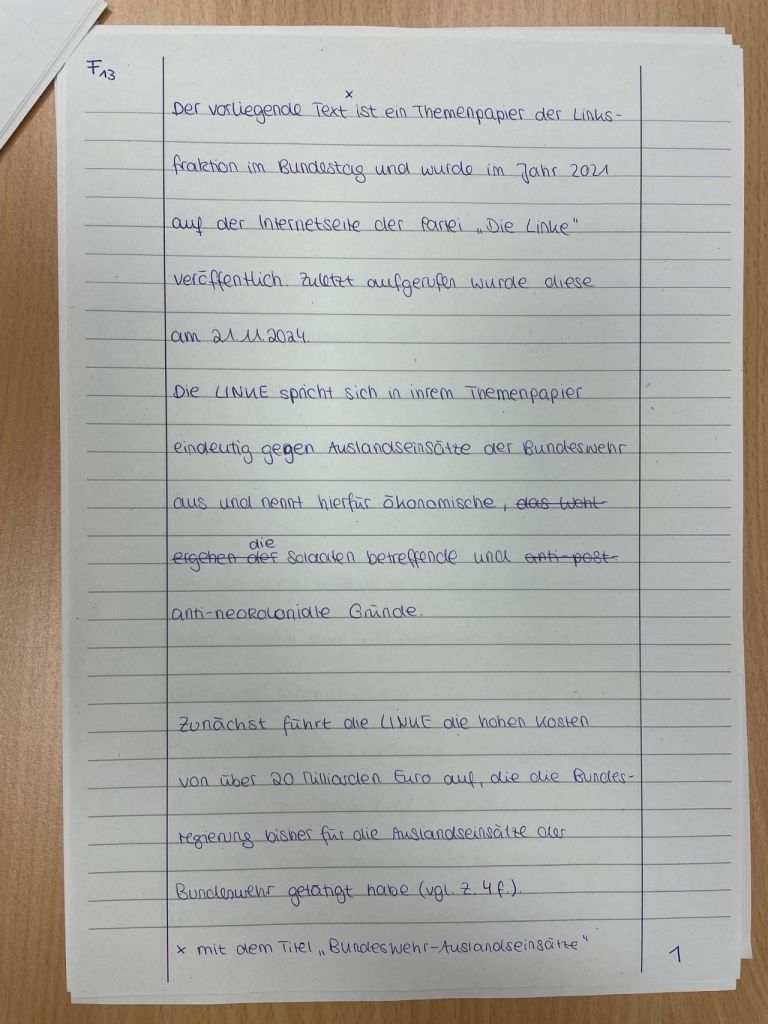 F13
x
Der vorliegende Text ist ein Themenpapier der Links-
fraktion im Bundestag und wurde im Jahr 2021
auf der Internetseite der Partei „Die Linke"
veröffentlich. Zuletzt aufgerufen wurde diese
am 21.11.2024.
Die LINKE spricht sich in ihrem Themenpapier
eindeutig gegen Auslandseinsätze der Bundeswehr
aus und nennt hierfür ökonomische, das Wohl-
die
ergehen der Soldaten betreffende und anti-post-
anti-neokoloniale Gründe.
Zunächst führt die LINKE die hohen Kosten
von über 20 Milliarden Euro auf, die die Bundes-
regierung bisher für die Auslandseinsätze der
Bundeswehr getätigt habe (vgl. Z. 4 f.).
x mit dem Titel „Bundeswehr-Auslandseinsätze"
1